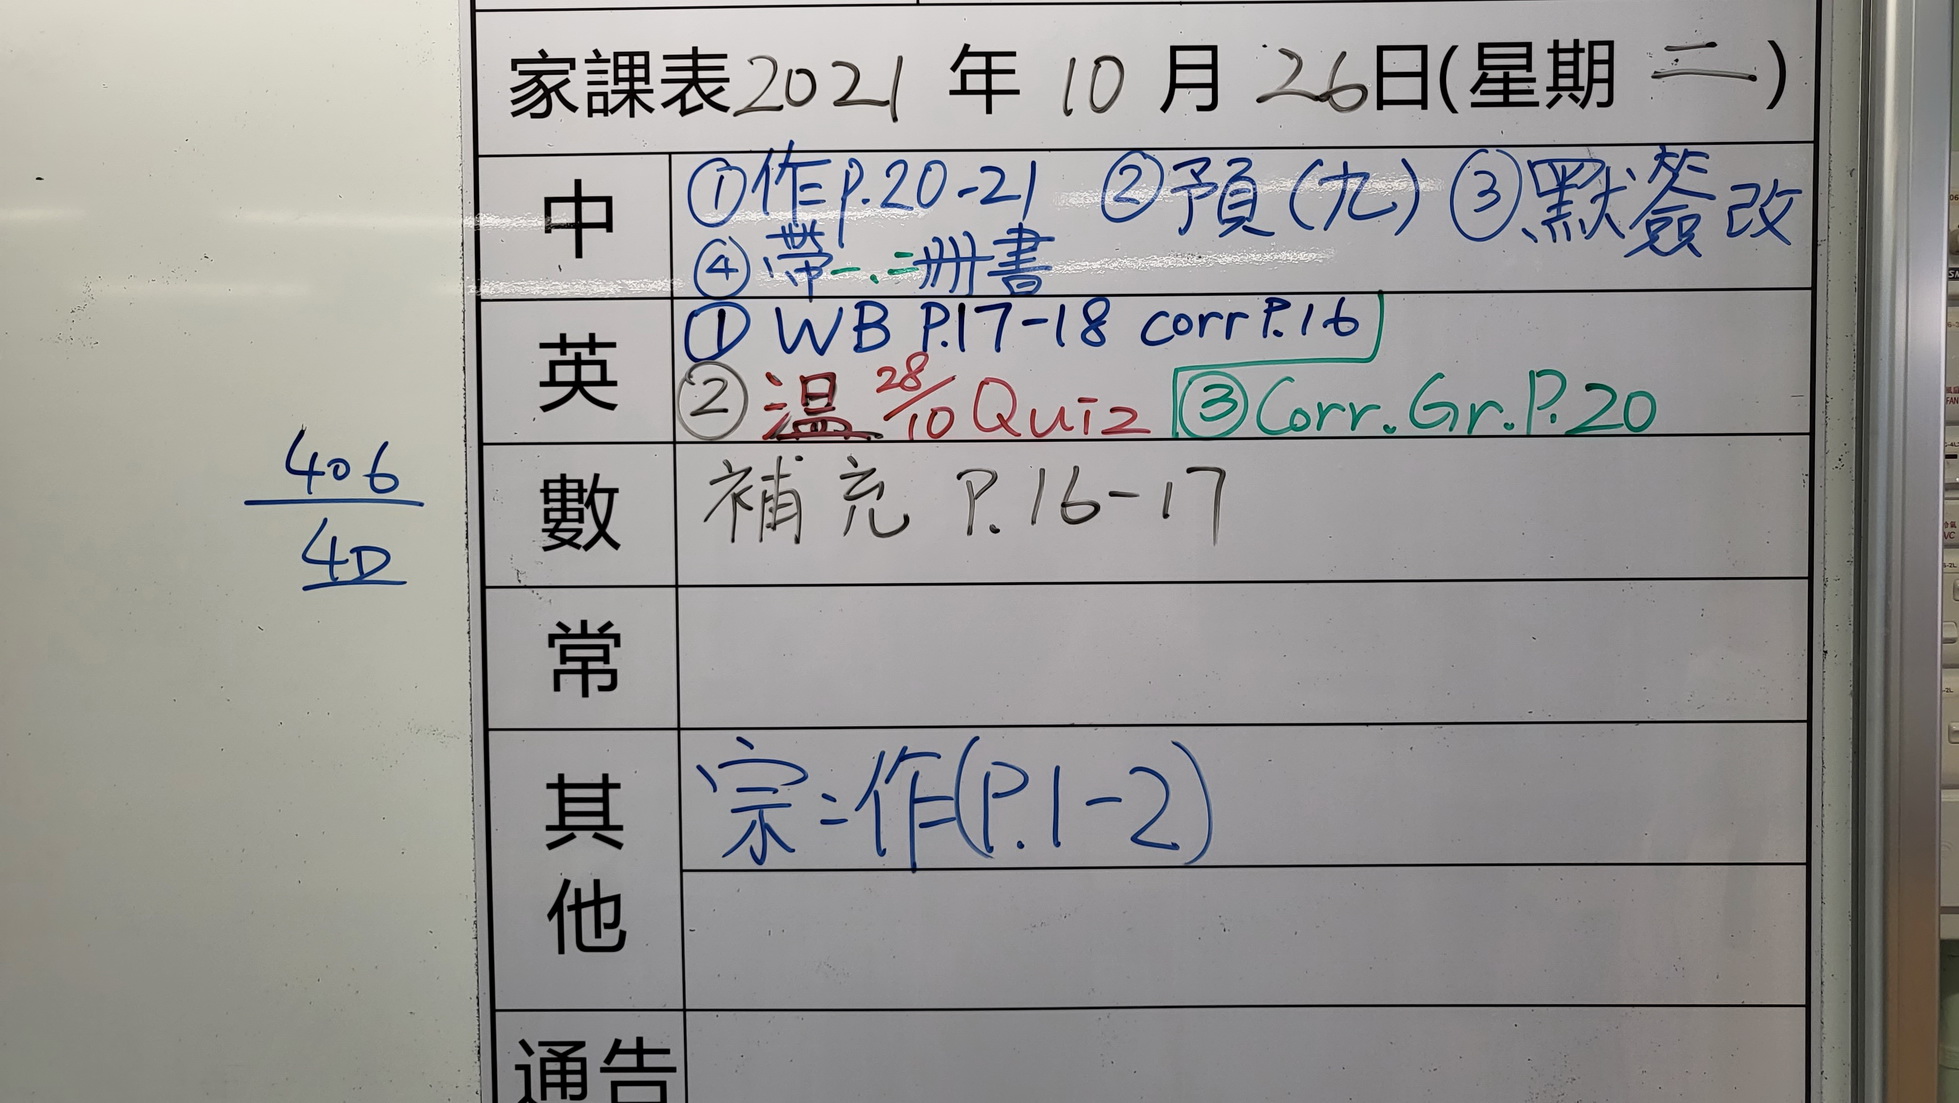 家課表2021年10月26日(星期二)
中 ①作P.20-21 ②預(九) ③默簽改
④帶一.二冊書
英 ① WB P.17-18 corr P.16
② 溫 28/10 Quiz ③Corr.Gr.P.20
數 補充 P.16-17
406
4D
常
其他 宗:作(P.1-2)
通告